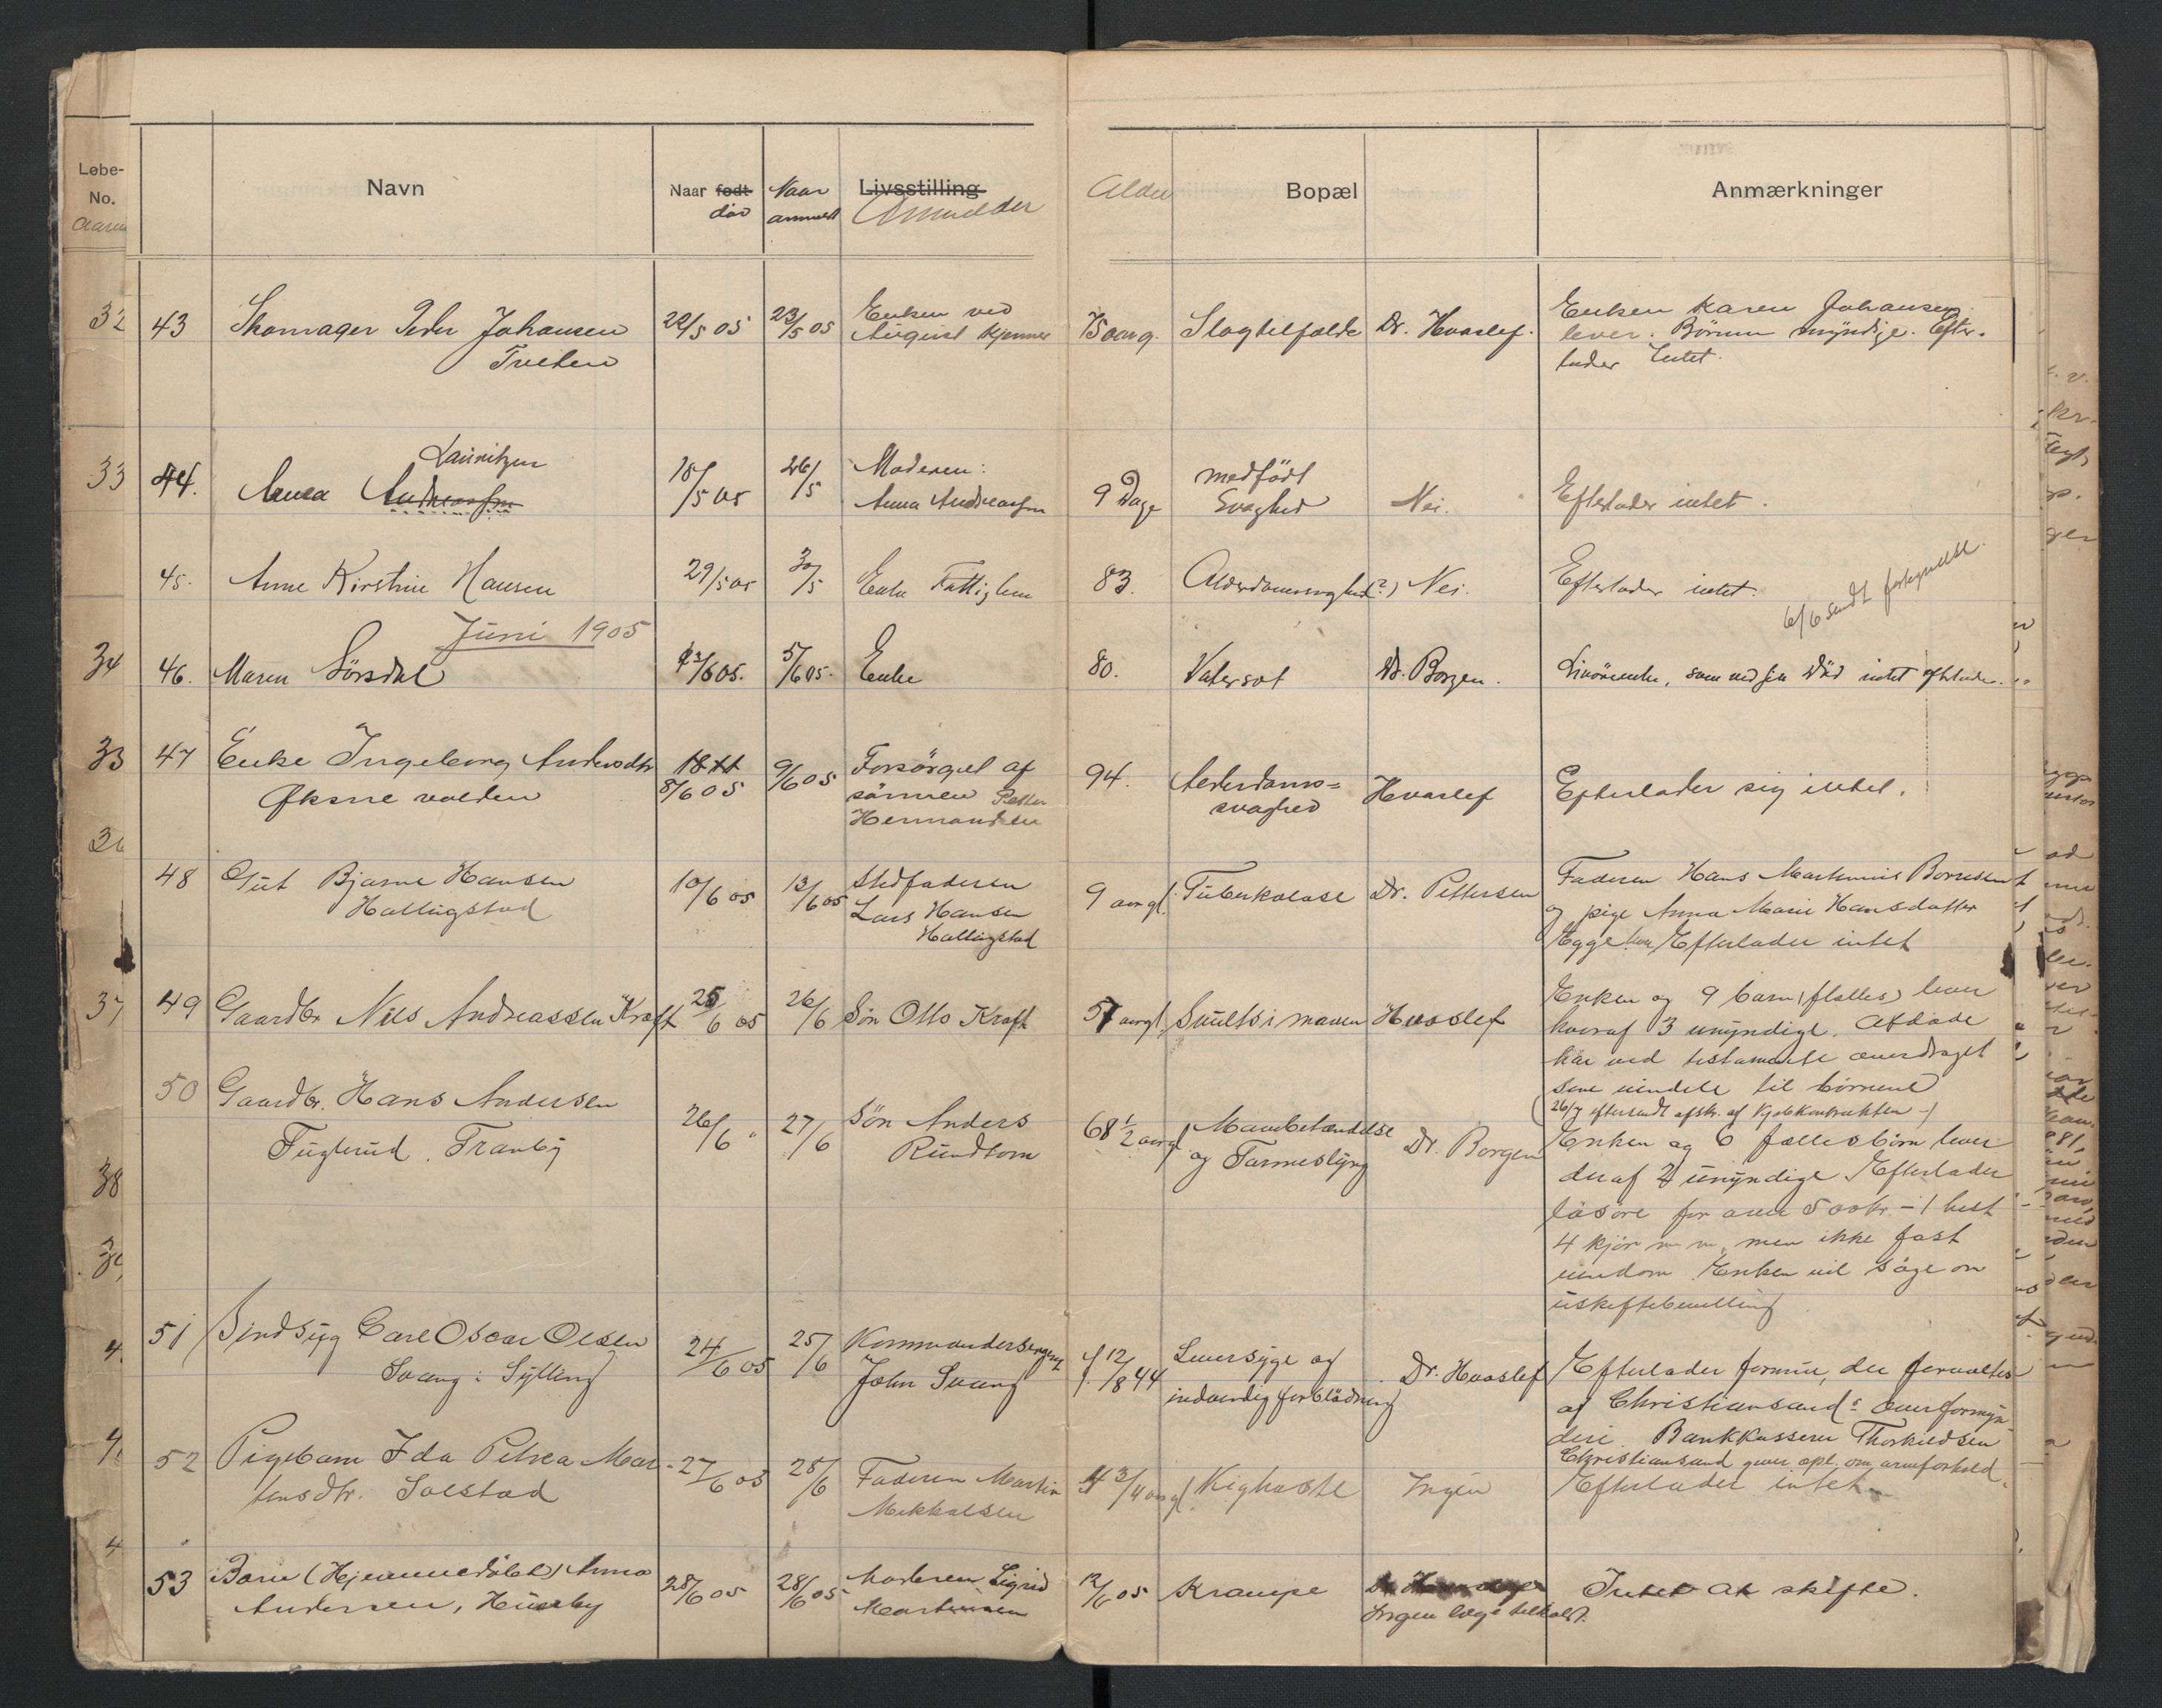 Løbe-
No.
Navn
Naar født
død
Naar
anmeldt
Livsstilling
Anmelder
Alder
Bopæl
Anmærkninger
32
43
Skomager Peder Johansen
Tveten
22/5 05
23/5 05
Enken ved
August
75 aarg.
Slagtilfælde
Dr. Hvoslef.
Enken Karen Johansen
lever. Børnene myndige. Efter-
lader Intet.
33
44.
Lauritzen
Anna Andreassen
18/5 05
26/5
Moderen:
Anna Andreassen
9 Dage
medfødt
Svaghed
Nei.
Efterlader intet.
45.
Anne Kirstine Hansen
29/5 05
30/5
Enke Fattiglem
83.
Alderdomssvaghed (?)
Nei.
Efterlader intet.
6/6 sendt fortegnelse.
Juni 1905
34
46.
Maren Sørsdal
/6 05.
5/6 05.
Enke
80.
Vatersot
Dr. Borgen.
som ved sin Død intet efterlader.
33
47
Enke Ingeborg Andersdtr
Øksne valden
18 11
8/6 05
9/6 05
Forsørget af
sønnen Petter
Hermansen
94.
Alderdoms=
svaghed
Hvoslef
Efterlader sig intet.
48
Gut Bjarne Hansen
Hallingstad
10/6 05
13/6 05
Stedfaderen
Lars Hansen
Hallingstad
9 aar gl.
Tuberkulose
Dr. Pettersen
Faderen Hans Martinius Borresen
og pige Anna Marie Hansdatter
Egge lever Efterlader intet
37
49
Gaardbr Nils Andreassen Kraft
25/6 05
26/6
Søn Otto Kraft
57 aar gl
Svulst i maven
Hvoslef
Enken og 9 barn (fælles) lever
hvoraf 3 umyndige. Afdøde
har ved testamente overdraget
sine eiendele til børnene
(26/7 eftersendt afskr. af Kjøbekontrakten -)
50
Gaardbr. Hans Andersen
Fuglerud. Tranby
26/6 "
27/6
Søn Anders
Rundtom
68 1/2 aar gl
Mavebetændelse
og Tarmeslyng
Dr. Borgen
Enken og 6 fællesbørn lever
deraf 2 umyndige Efterlader
løsøre for over 500 kr. - 1 hest
4 kjør m m, men ikke fast
eiendom. Enken vil søge om
uskiftebevilling
38
51
Sindsyg Carl Oscar Olsen
Svang i Sylling
24/6 05
25/6
Kommandersergent
John Svang
f. 12/8 44
Leversyge og
indvendig forblødning
Dr. Hvoslef
Efterlader formue, der forvaltes
af Christiansands overformyn
deri. Bankkasserer Thorkildsen
Christiansand giver opl. om arveforhold.
52
Pigebarn Ida Petrea Mar-
tinsdtr. Solstad
27/6 05
28/6
Faderen Martin
Mikkelsen
4 3/4 aar gl
Kighoste
Ingen
Efterlader intet
53
Barn (Hjemmedøbt) Anna
Andersen, Huseby
28/6 05
28/6 05
Moderen Sigrid
Martinsen
12/6 05
Krampe
Ingen læge tilkaldt.
Intet at skifte.